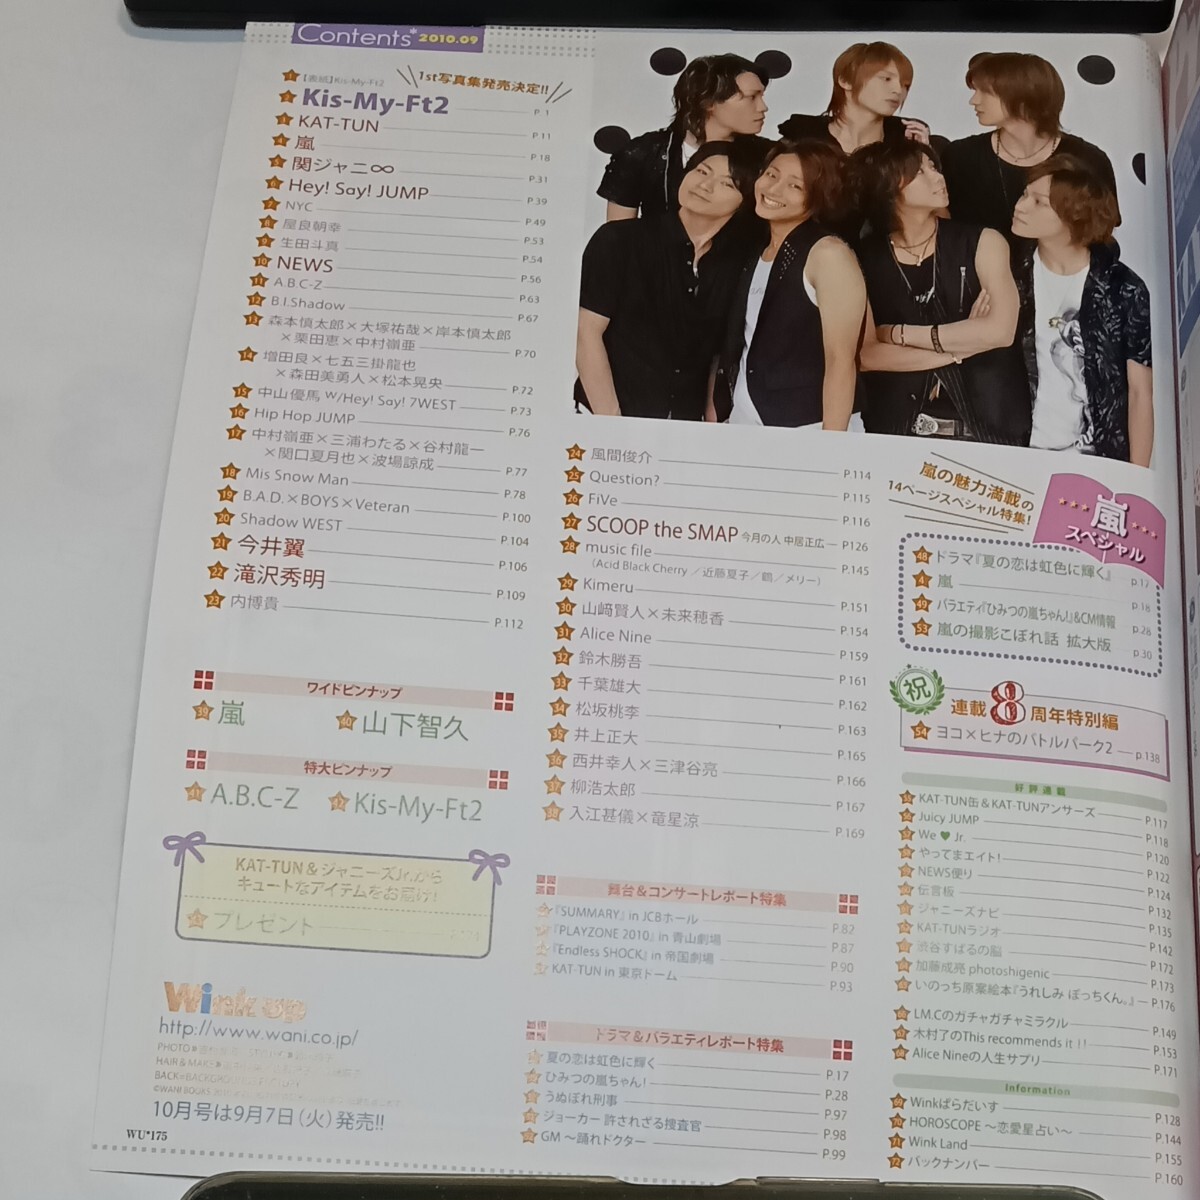 Contents* 2010.09
1 【表紙】Kis-My-Ft2
1st写真集発売決定!!
2 Kis-My-Ft2 P.1
3 KAT-TUN P.11
4 嵐 P.18
5 関ジャニ∞ P.31
6 Hey! Say! JUMP P.39
7 NYC P.49
8 屋良朝幸 P.53
9 生田斗真 P.54
10 NEWS P.56
11 A.B.C-Z P.63
12 B.I.Shadow P.67
13 森本慎太郎×大塚祐哉×岸本慎太郎
×栗田恵×中村嶺亜 P.70
14 増田良×七五三掛龍也
×森田美勇人×松本晃央 P.72
15 中山優馬 w/Hey! Say! 7WEST P.73
16 Hip Hop JUMP P.76
17 中村嶺亜×三浦わたる×谷村龍一
×関口夏月也×波場諒成 P.77
18 Mis Snow Man P.78
19 B.A.D.×BOYS×Veteran P.100
20 Shadow WEST P.104
21 今井翼 P.106
22 滝沢秀明 P.109
23 内博貴 P.112
ワイドピンナップ
39 嵐
40 山下智久
特大ピンナップ
41 A.B.C-Z
42 Kis-My-Ft2
KAT-TUN＆ジャニーズJr.から
キュートなアイテムをお届け!
プレゼント
Wink up
http://www.wani.co.jp/
10月号は9月7日(火)発売!!
WU*175
24 風間俊介 P.114
25 Question? P.115
26 FiVe P.116
27 SCOOP the SMAP 今月の人 中居正広 P.126
28 music file P.145
(Acid Black Cherry／近藤夏子／鶴／メリー)
29 Kimeru P.151
30 山﨑賢人×未来穂香 P.154
31 Alice Nine P.159
32 鈴木勝吾 P.161
33 千葉雄大 P.162
34 松坂桃李 P.163
35 井上正大 P.165
36 西井幸人×三津谷亮 P.166
37 柳浩太郎 P.167
38 入江甚儀×竜星涼 P.169
舞台＆コンサートレポート特集
『SUMMARY』in JCBホール P.82
『PLAYZONE 2010』in 青山劇場 P.87
『Endless SHOCK』in 帝国劇場 P.90
KAT-TUN in 東京ドーム P.93
ドラマ＆バラエティレポート特集
夏の恋は虹色に輝く P.17
ひみつの嵐ちゃん! P.28
うぬぼれ刑事 P.97
ジョーカー 許されざる捜査官 P.98
GM ～踊れドクター P.99
嵐の魅力満載の
14ページスペシャル特集!
嵐
スペシャル
48 ドラマ『夏の恋は虹色に輝く』 p.17
4 嵐 p.18
49 バラエティ『ひみつの嵐ちゃん!』&CM情報 p.28
53 嵐の撮影こぼれ話 拡大版 p.30
祝
連載8周年特別編
54 ヨコ×ヒナのバトルパーク2 p.138
好評連載
KAT-TUN缶＆KAT-TUNアンサーズ P.117
Juicy JUMP P.118
We ♥ Jr. P.120
やってまエイト! P.122
NEWS便り P.124
伝言板 P.132
ジャニーズナビ P.135
KAT-TUNラジオ P.142
渋谷すばるの脳 P.172
加藤成亮 photoshigenic P.173
いのっち原案絵本『うれしみ ぼっちくん。』 P.176
LM.Cのガチャガチャミラクル P.149
木村了のThis recommends it !! P.153
Alice Nineの人生サプリ P.171
Information
Winkぱらだいす P.128
HOROSCOPE ～恋愛星占い～ P.144
Wink Land P.155
バックナンバー P.160